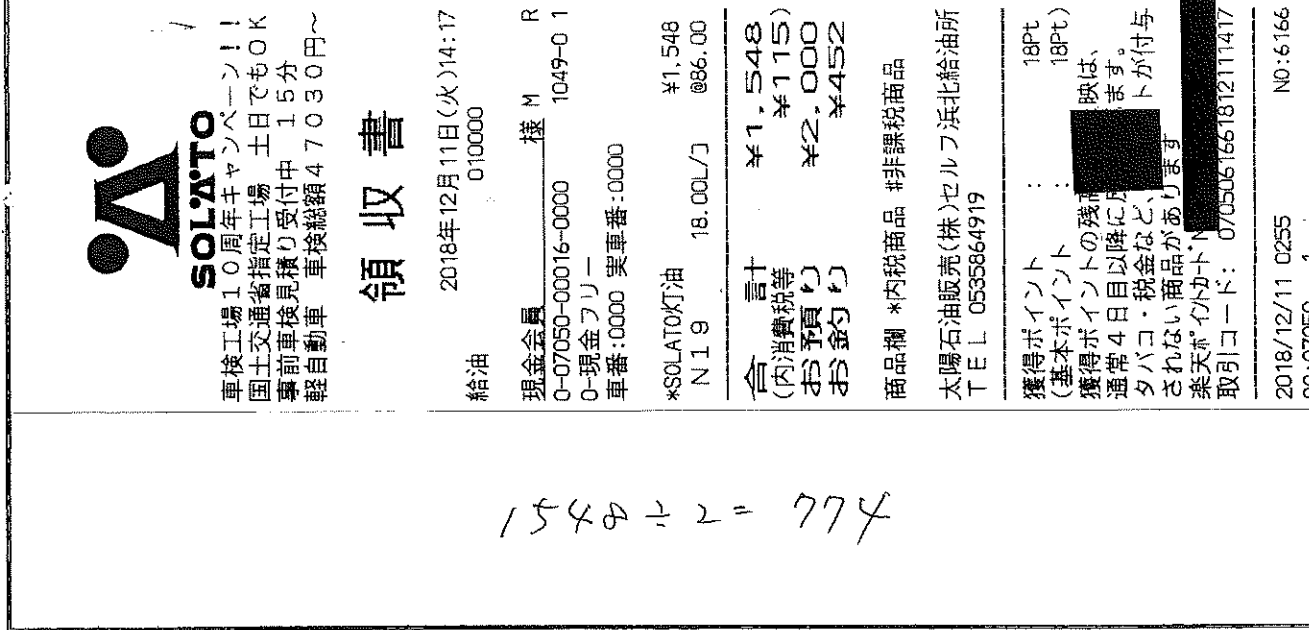 SOLATO
車検工場10周年キャンペーン!!
国土交通省指定工場 土日でもOK
事前車検見積り受付中 15分
軽自動車 車検総額47030円~
領収書
2018年12月11日(火)14:17
給油 010000
現金会員 様 M R
0-07050-00016-0000 1049-0 1
0-現金フリー
車番:0000 実車番:0000
*SOLATO灯油 ¥1,548
N19 18.00L/コ @86.00
合計 ¥1,548
(内消費税等 ¥115)
お預り ¥2,000
お釣り ¥452
商品欄 *内税商品 #非課税商品
太陽石油販売(株)セルフ浜北給油所
TEL 0535864919
獲得ポイント : 18Pt
(基本ポイント : 18Pt)
獲得ポイントの残高 映は、
通常4日目以降に反 ます。
タバコ・税金など、 トが付与
されない商品があります
楽天ポイントカードN
取引コード: 0705061661812111417
2018/12/11 0255 NO:6166
1548÷2=774